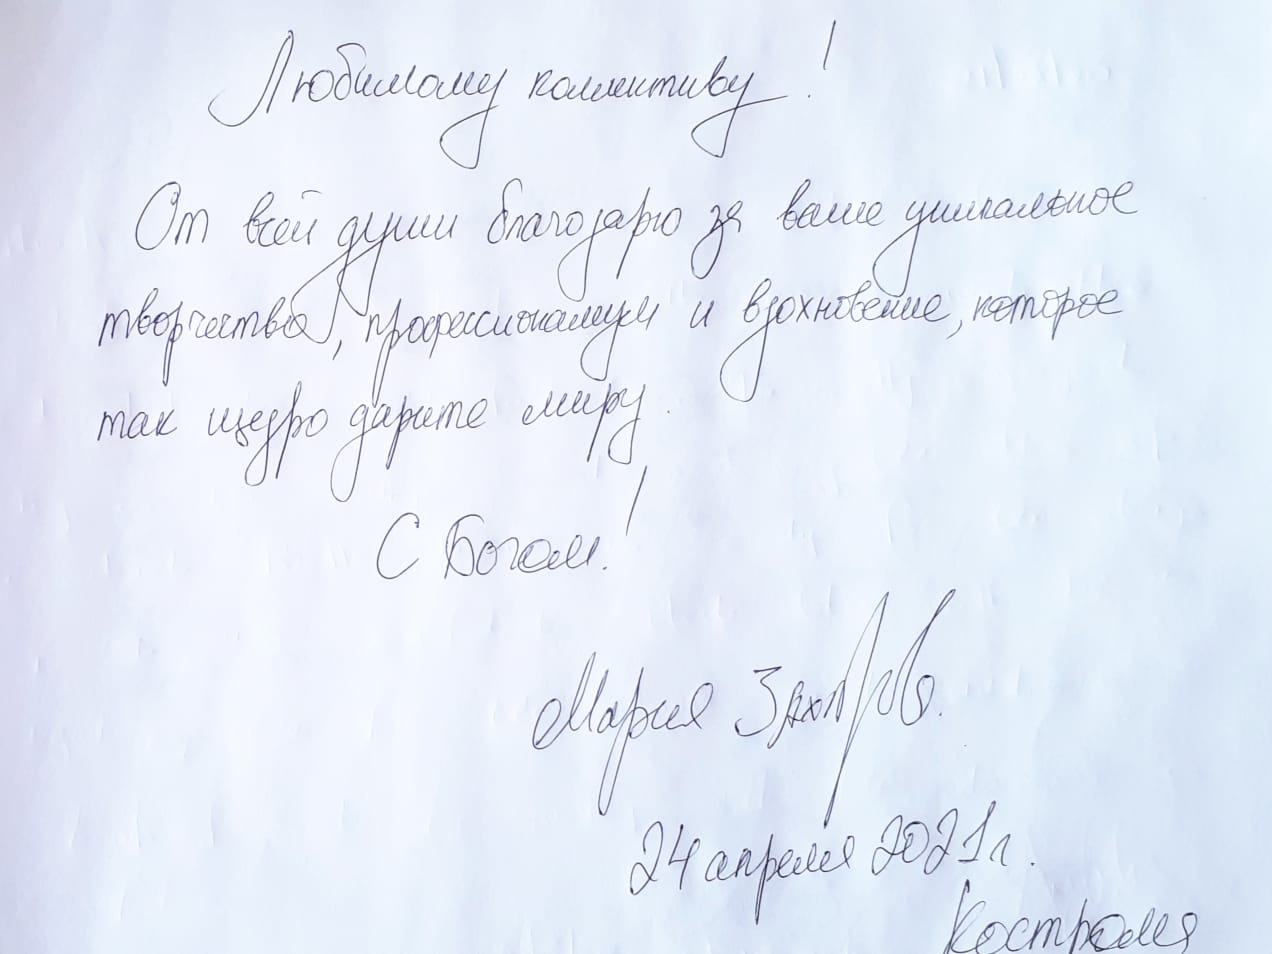 Любимому коллективу!
От всей души благодарю за ваше уникальное
творчество, профессионализм и вдохновение, которое
так щедро дарите миру.
С Богом!
Мария Захаров
24 апреля 2021 г.
Кострома